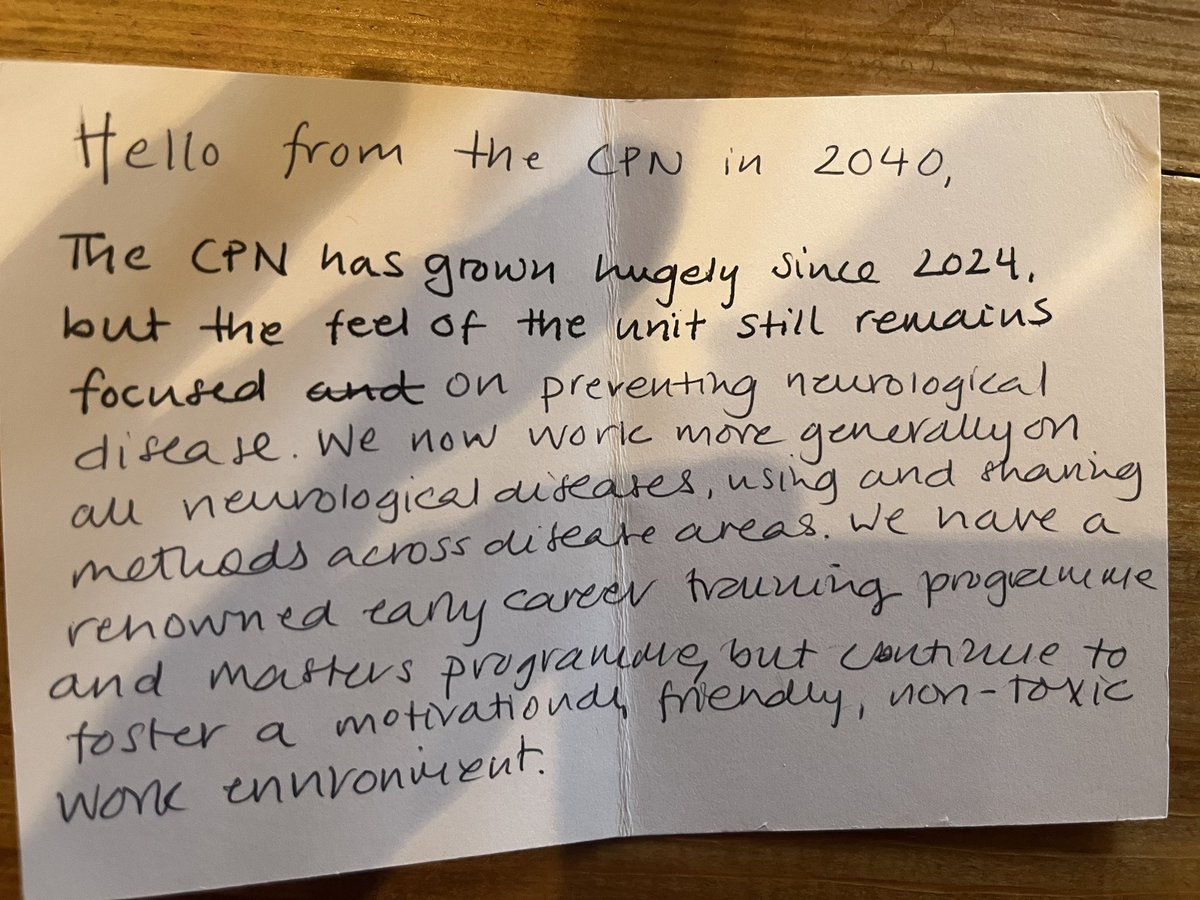 Hello from the CPN in 2040,
The CPN has grown hugely since 2024,
but the feel of the unit still remains
focused and on preventing neurological
disease. We now work more generally on
all neurological diseases, using and sharing
methods across disease areas. We have a
renowned early career training programme
and masters programme, but continue to
foster a motivational, friendly, non-toxic
work environment.